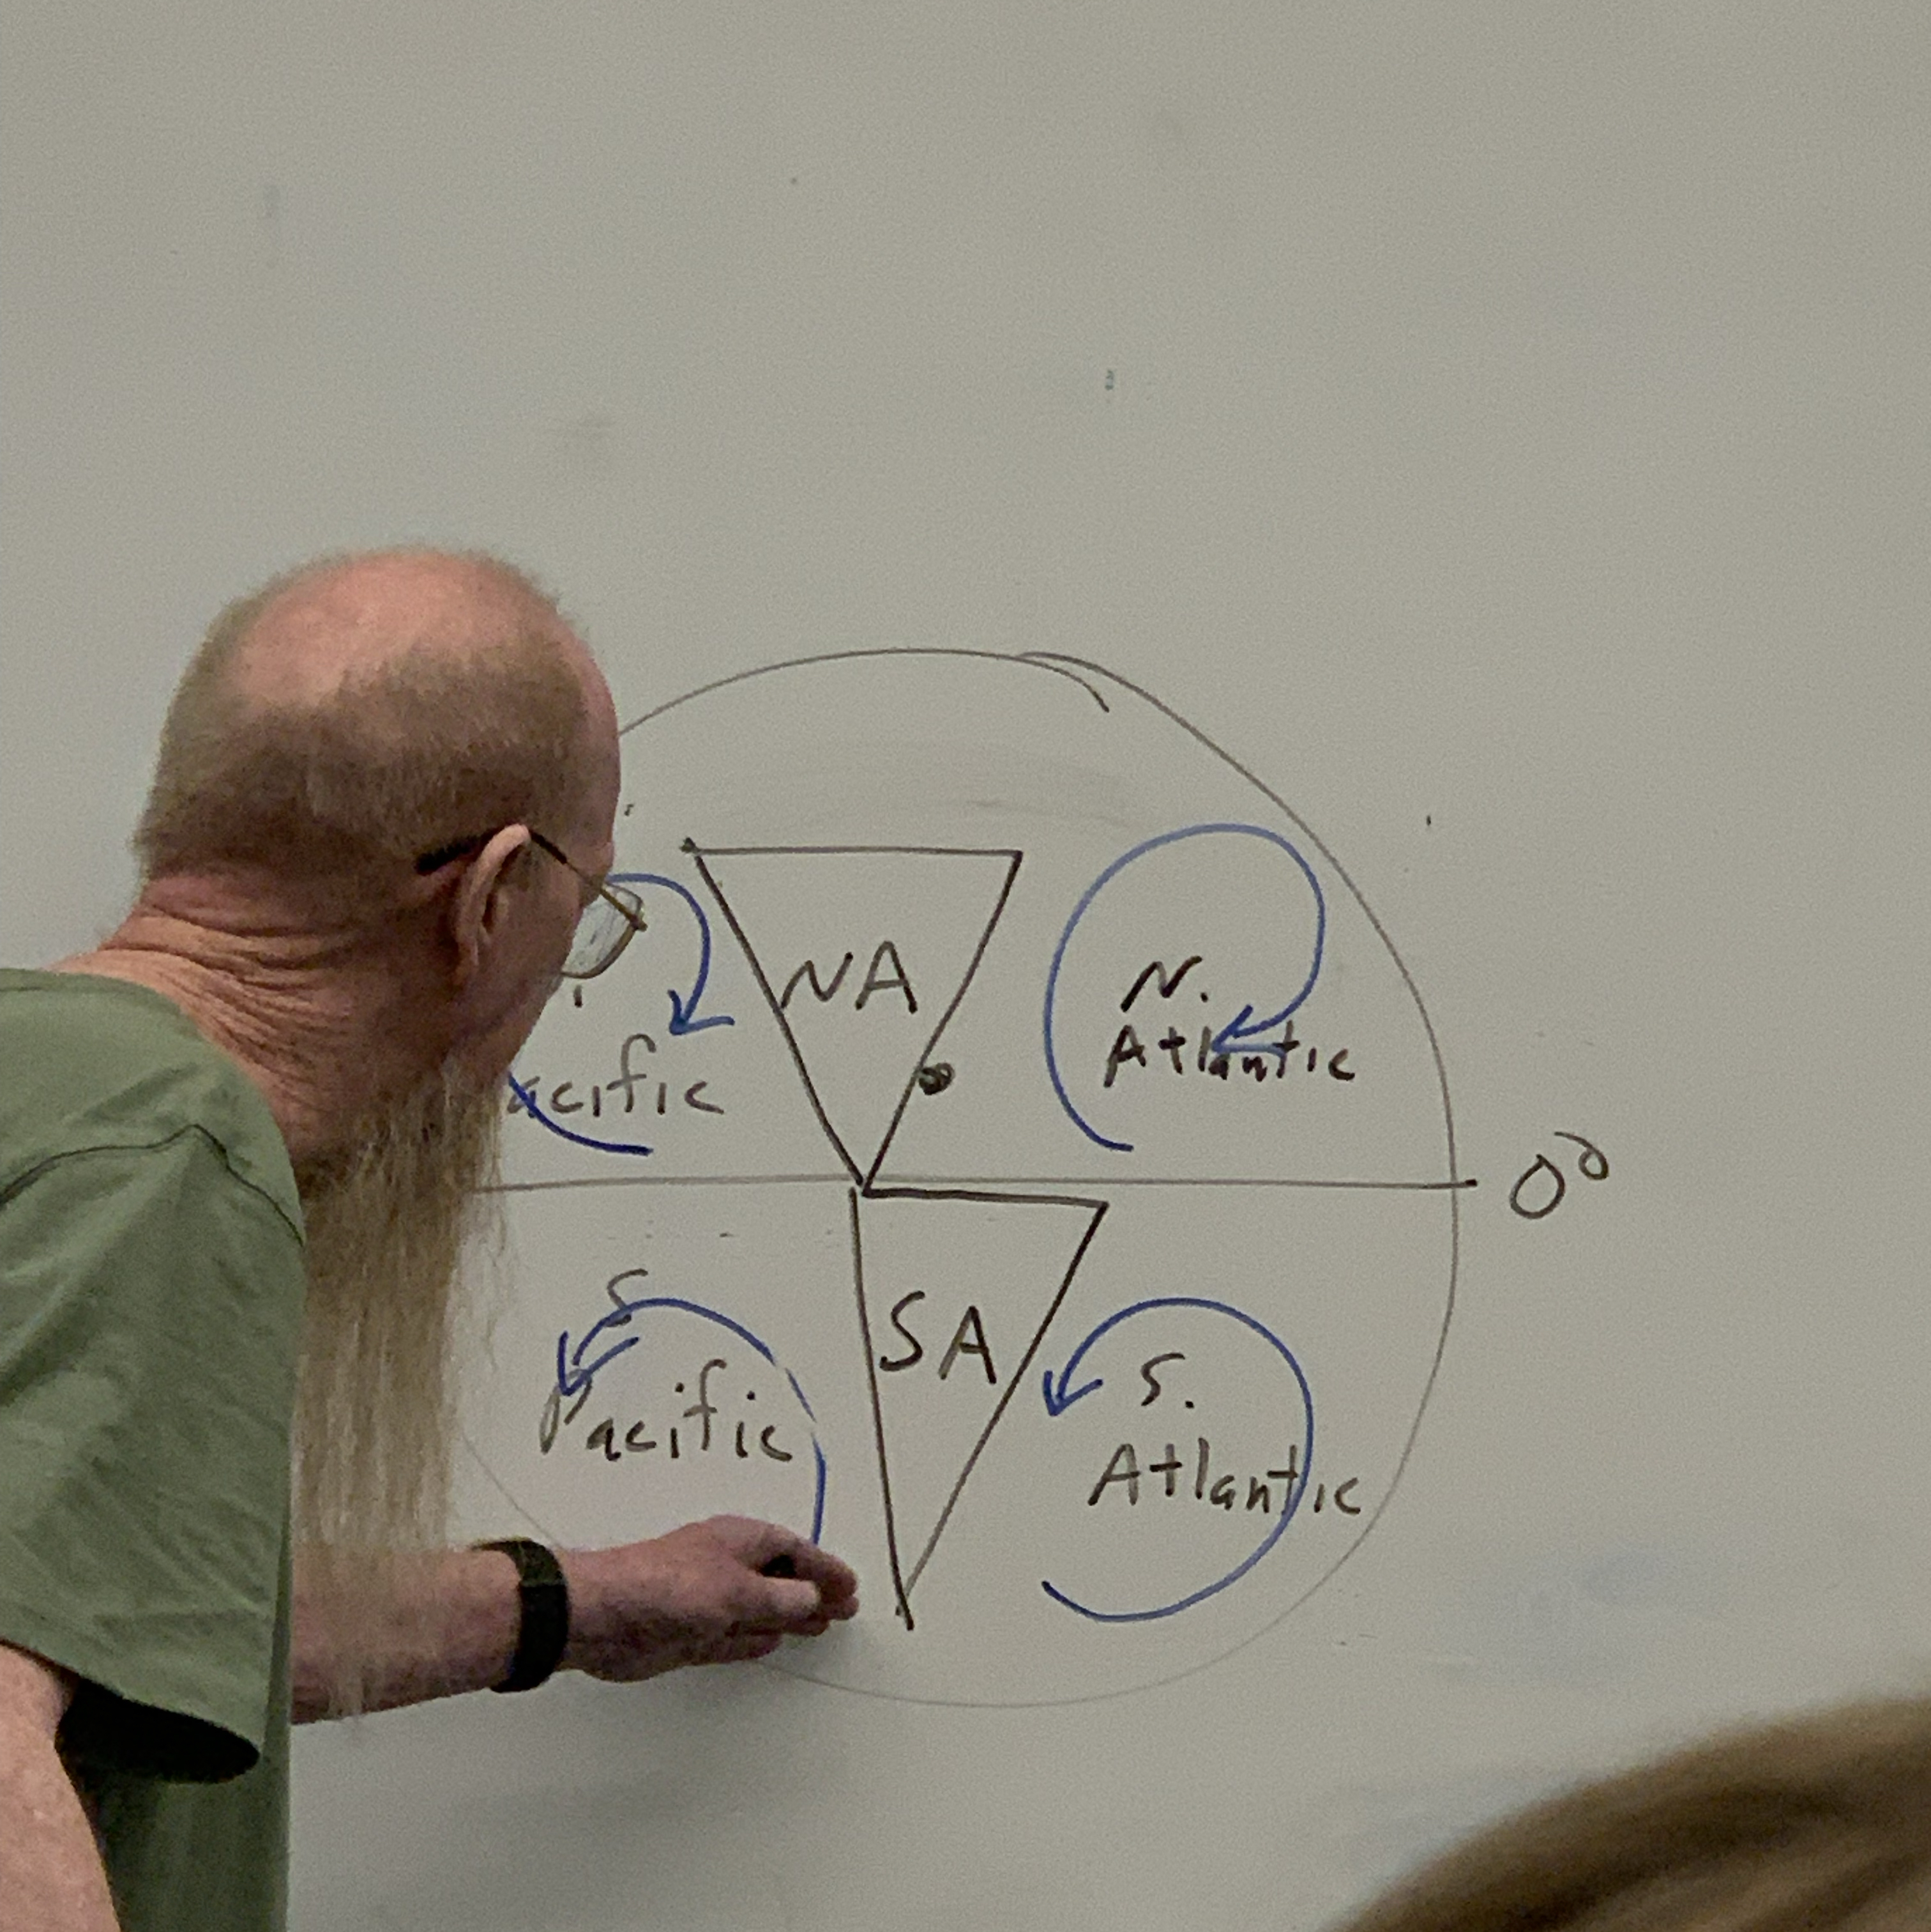 NA
N.
acific
Atlantic
0°
S
Pacific
SA
S.
Atlantic